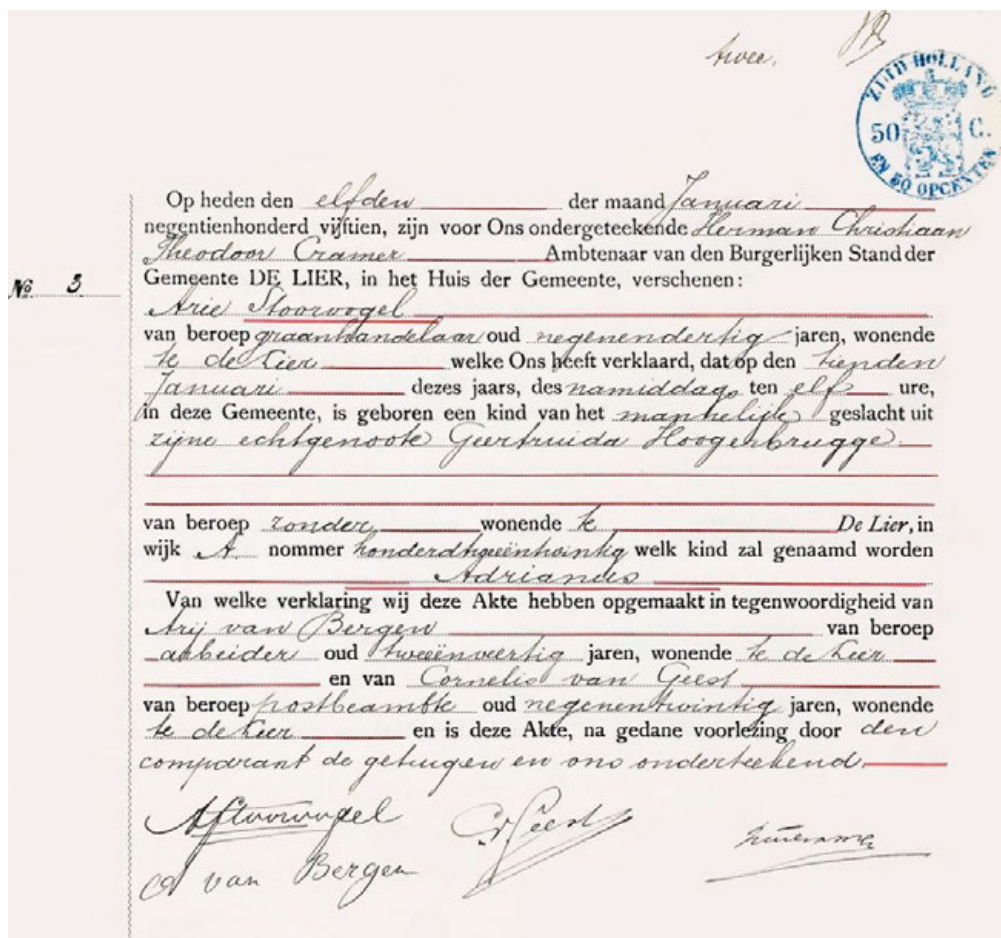 twee.
ZUID HOLLAND
50 C.
EN 50 OPCENTEN
Op heden den elfden der maand Januari
negentienhonderd vijftien, zijn voor Ons ondergeteekende Herman Christiaan
Theodoor Cramer Ambtenaar van den Burgerlijken Stand der
Gemeente DE LIER, in het Huis der Gemeente, verschenen:
No. 3
Arie Stoorvogel
van beroep graanhandelaar oud negenendertig jaren, wonende
te de Lier welke Ons heeft verklaard, dat op den tienden
Januari dezes jaars, des namiddags ten elf ure,
in deze Gemeente, is geboren een kind van het mannelijk geslacht uit
zijne echtgenoote Geertruida Hoogenbrugge.
van beroep zonder wonende te De Lier, in
wijk A. nommer honderdtweeëntwintig welk kind zal genaamd worden
Adrianus
Van welke verklaring wij deze Akte hebben opgemaakt in tegenwoordigheid van
Arij van Bergen van beroep
arbeider oud tweeënveertig jaren, wonende te de Lier
en van Cornelis van Geest
van beroep postbeambte oud negenentwintig jaren, wonende
te de Lier en is deze Akte, na gedane voorlezing door den
comparant de getuigen en ons onderteekend.
A Stoorvogel
C v Geest
A van Bergen